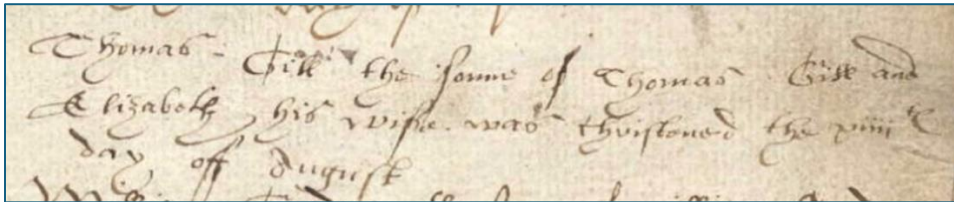 Thomas Gill the sonne of Thomas Gill and
Elizabeth his wife was christoned the xiiiith
day off August